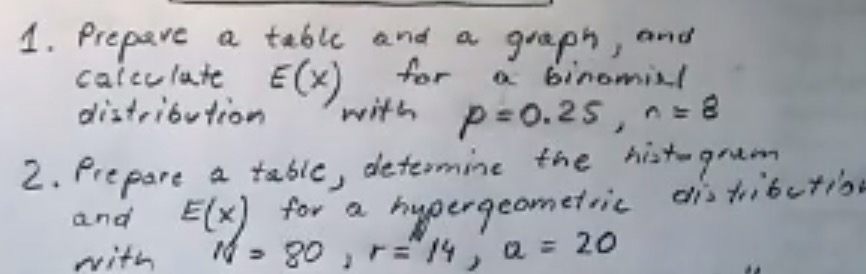 1. Prepare a table and a graph, and
calculate E(x) for a binomial
distribution with p=0.25, n=8
2. Prepare a table, determine the histogram
and E(x) for a hypergeometric distribution
with N=80, r=14, a=20